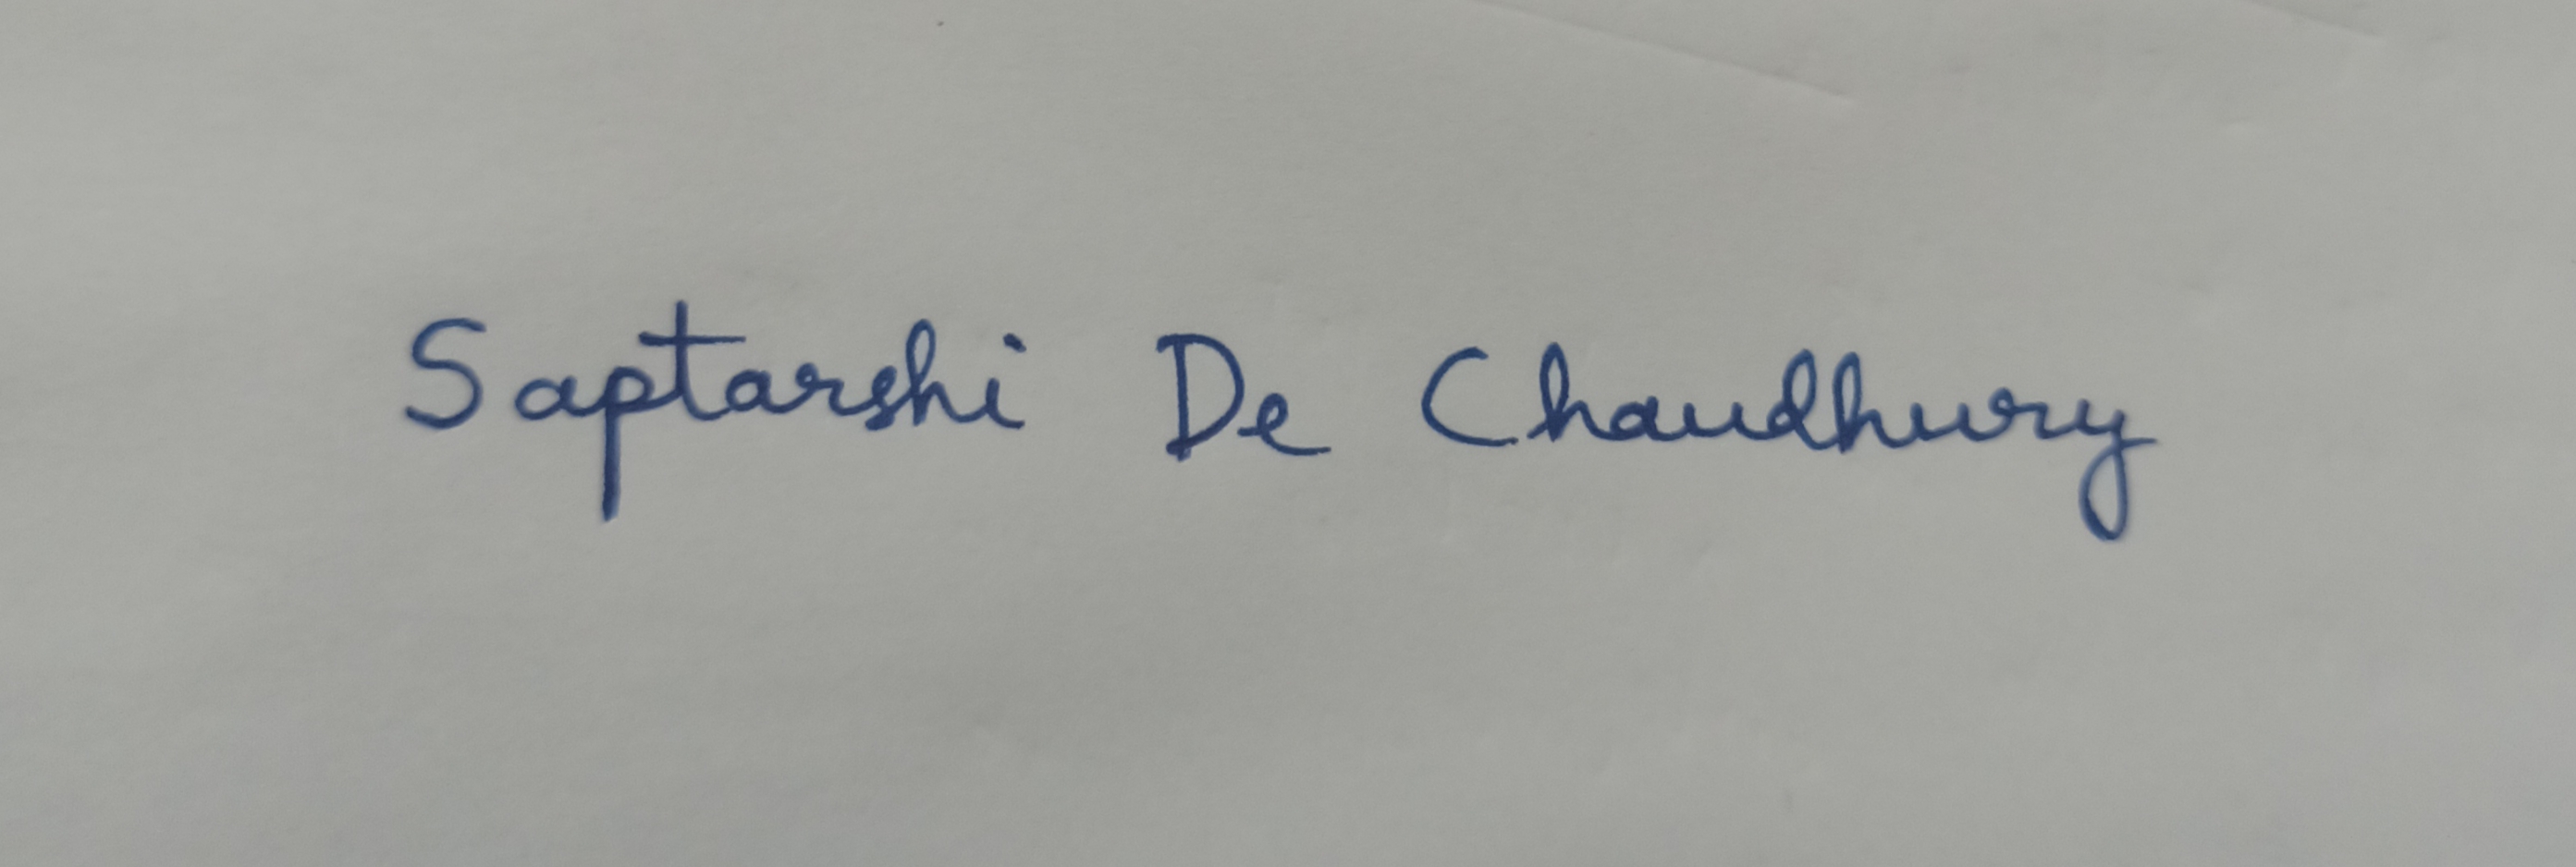 Saptarshi De Chaudhury